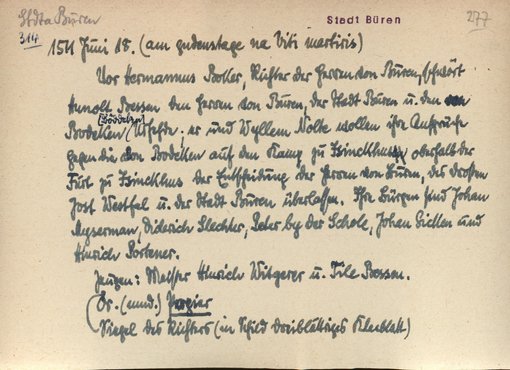 Stdta Büren
Stadt Büren
277
314
1511 Juni 18. (am gudenstage na Viti martiris)
Vor Hermannus Boller, Richter der Herren von Büren, schwört
Arnolt Bessen den Herren von Büren, der Stadt Büren u. den von
[Böddeken]
Bodeken Urfehde: er und Wyllem Nolte wollen ihre Ansprüche
gegen die von Bodeken auf den Kamp zu oberhalb der
Furt zu der Entscheidung der Herren von Büren, des Drosten
Jost Westfal u. der Stadt Büren überlassen. Ihre Bürgen sind Johan
Diderich Slechter, Peter by der Schole, Johan und
Hinrich
Zeugen: Mester Hinrich Witgerer u. Tile Bessen.
Or. (mnd.) Papier
Siegel des Richters (in Schild dreiblättriges Kleeblatt)